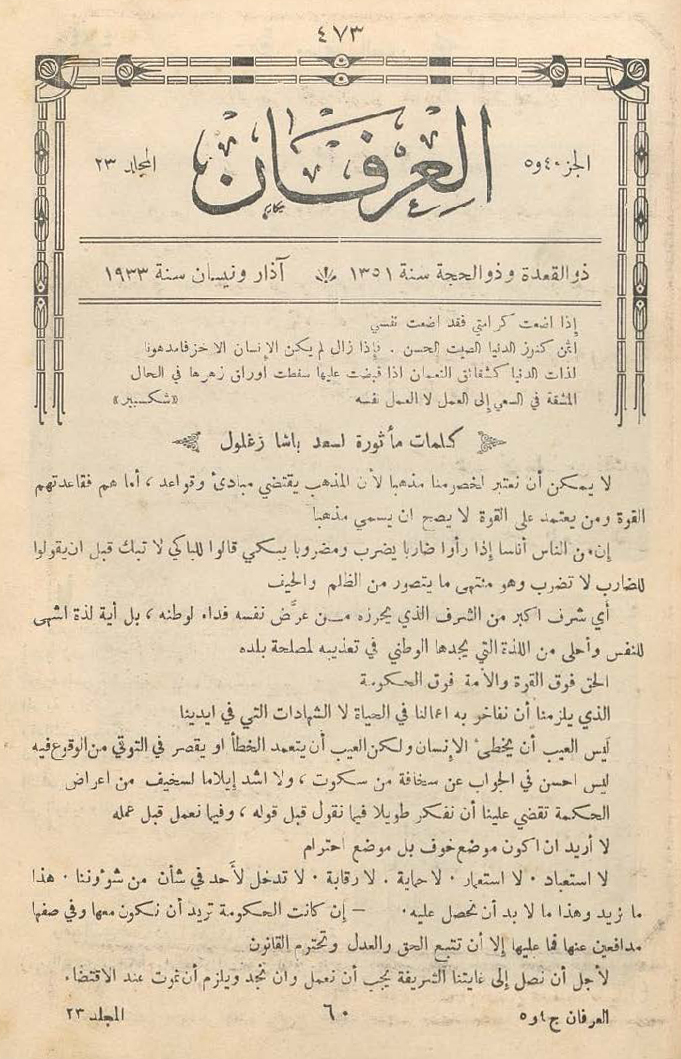 ٤٧٣
الجزء ٤ و ٥
العرفان
المجلد ٢٣
ذو القعدة وذو الحجة سنة ١٣٥١
آذار ونيسان سنة ١٩٣٣
إذا اضعت كرامتي فقد اضعت نفسي
اثمن كنوز الدنيا الصيت الحسن . فإذا زال لم يكن الإنسان الا خزفا مدهونا
لذات الدنيا كشقائق النعمان اذا قبضت عليها سقطت اوراق زهرها في الحال
المشقة في السعي إلى العمل لا العمل نفسه
«شكسبير»
كلمات مأثورة لسعد باشا زغلول
لا يمكن أن نعتبر لخصومنا مذهبا لأن المذهب يقتضي مبادئ وقواعد ، أما هم فقاعدتهم
القوة ومن يعتمد على القوة لا يصح ان يسمي مذهبا
إن من الناس أناسا إذا رأوا ضاربا يضرب ومضروبا يبكي قالوا للباكي لا تبك قبل ان يقولوا
للضارب لا تضرب وهو منتهى ما يتصور من الظلم والحيف
أي شرف اكبر من الشرف الذي يحرزه من عرَّض نفسه فداء لوطنه ، بل أية لذة اشهى
للنفس وأحلى من اللذة التي يجدها الوطني في تعذيبه لمصلحة بلده
الحق فوق القوة والأمة فوق الحكومة
الذي يلزمنا أن نفاخر به اعمالنا في الحياة لا الشهادات التي في ايدينا
ليس العيب أن يخطئ الإنسان ولكن العيب أن يتعمد الخطأ او يقصر في التوقي من الوقوع فيه
ليس احسن في الجواب عن سخافة من سكوت ، ولا اشد إيلاما لسخيف من اعراض
الحكمة تقضي علينا أن نفكر طويلا فيما نقول قبل قوله ، وفيما نعمل قبل عمله
لا أريد ان اكون موضع خوف بل موضع احترام
لا استعباد . لا استعمار . لا حماية . لا رقابة . لا تدخل لأحد في شأن من شؤوننا . هذا
ما نريد وهذا ما لا بد أن نحصل عليه. – إن كانت الحكومة تريد أن نكون معها وفي صفها
مدافعين عنها فما عليها إلا أن تتبع الحق والعدل وتحترم القانون
لأجل أن نصل إلى غايتنا الشريفة يجب أن نعمل وان نجد ويلزم أن نموت عند الاقتضاء
العرفان ج ٤ و ٥
٦٠
المجلد ٢٣